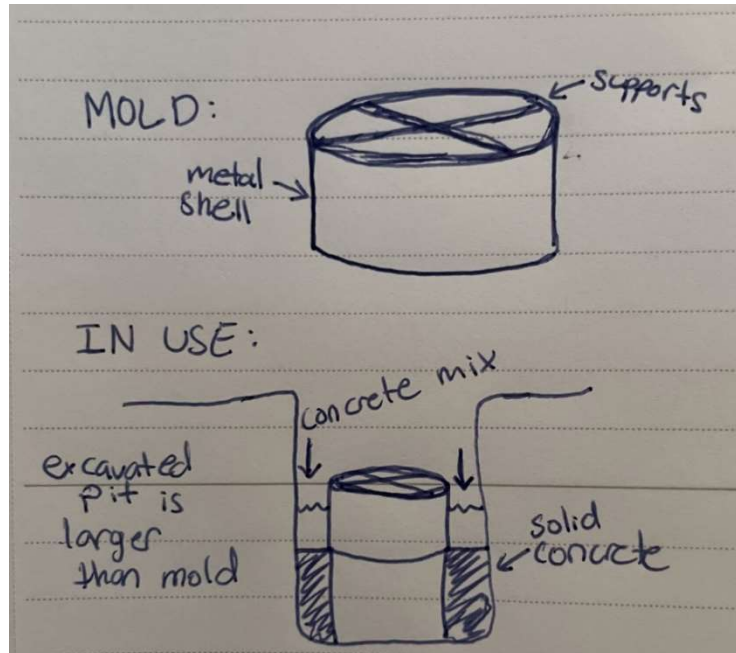 MOLD:
supports
metal
shell
IN USE:
concrete mix
excavated
pit is
larger
than mold
solid
concrete